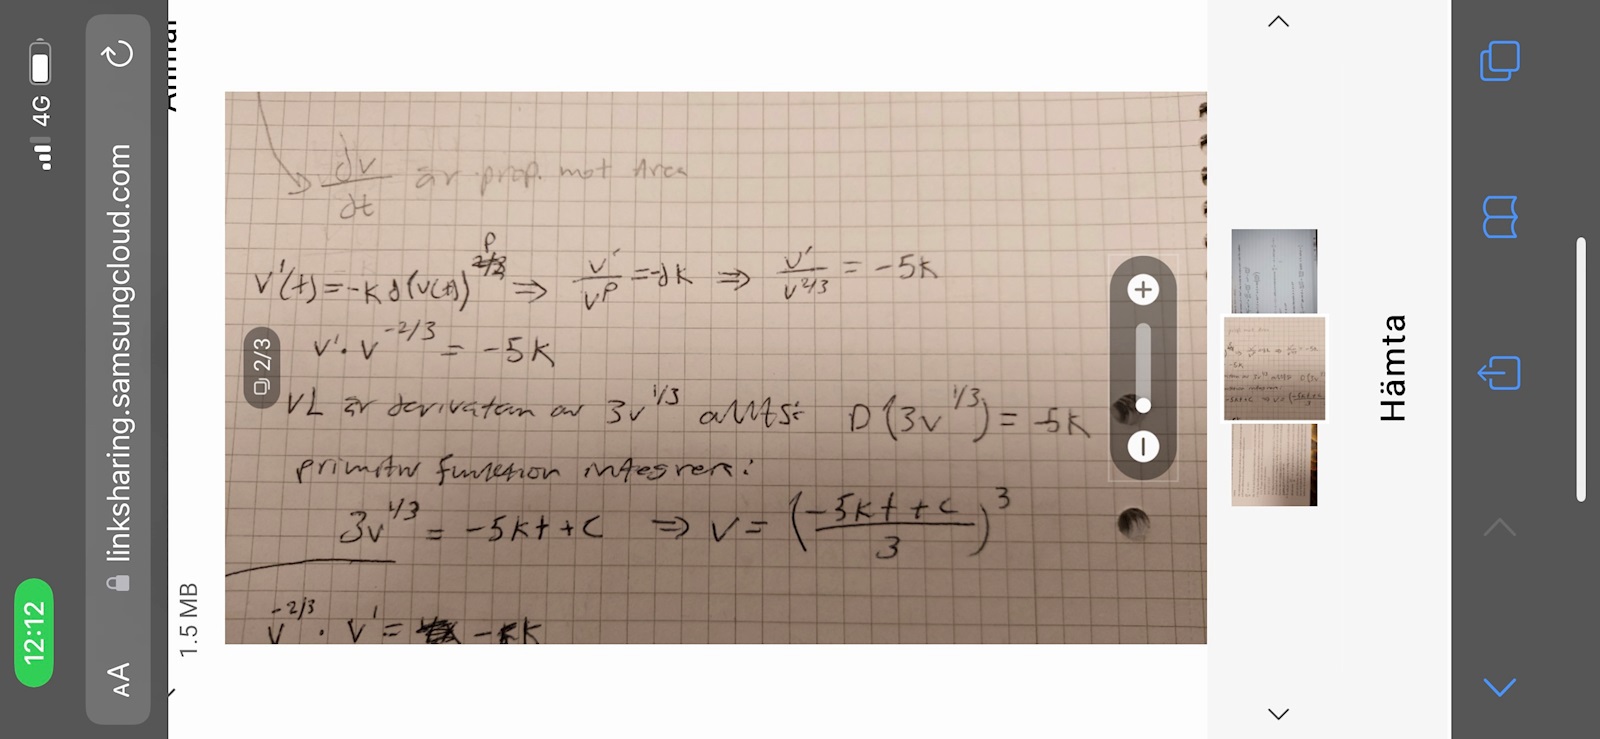 12:12
4G
AA
linksharing.samsungcloud.com
1.5 MB
dv/dt är prop. mot Area
V'(t) = -k d(v(t))^p ⇒ v'/v^p = -dk ⇒ v'/v^2/3 = -5k
v' · v^-2/3 = -5k
2/3
VL är derivatan av 3v^1/3 alltså: D(3v^1/3) = -5k
primitiv funktion integrera:
3v^1/3 = -5kt + C ⇒ v = ((-5kt + C)/3)^3
v^-2/3 · v' = -k
Hämta